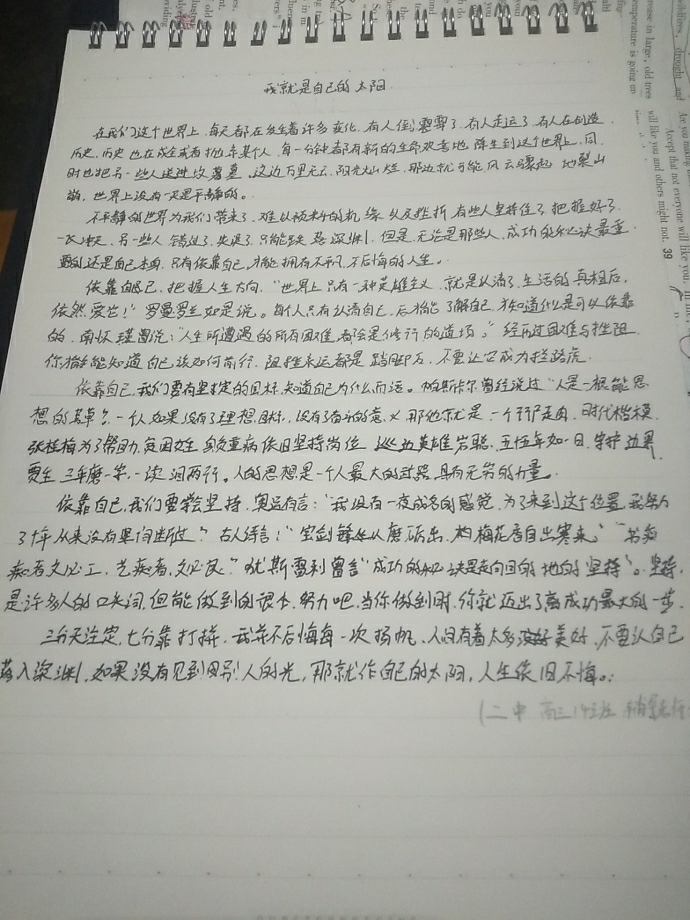 我就是自己的太阳
在我们这个世界上,每天都在发生着许多变化,有人倒霉了,有人走运了,有人在创造
历史,历史也在成全或者抛弃某个人,每一分钟都有新的生命欢喜地降生到这个世界上,同
时也把另一些人送进坟墓里,这边万里无云,阳光灿烂,那边就可能风云骤起,地裂山
崩,世界上没有一天是平静的。
不平静的世界为我们带来了难以预料的机缘以及挫折,有些人坚持住了,把握好了
一飞冲天,另一些人错过了,失误了,只能跌落深渊,但是,无论是那些人,成功的秘诀最重
要的还是自己本身,只有依靠自己,才能拥有不平凡,不后悔的人生。
依靠自己,把握人生大向,"世界上只有一种英雄主义,就是认清了生活的真相后,
依然爱它!"罗曼罗兰如是说。每个人只有认清自己,后才能了解自己,才知道什么是可以依靠
的,南怀瑾曾说:"人生所遭遇的所有困难,都会是修行的道场。"经历过困难与挫阻,
你才能知道自己该如何前行,阻挫永远都是踏脚石,不要让它成为拦路虎。
依靠自己,我们要有坚定的目标,知道自己为什么而活。帕斯卡尔曾经说过"人是一根能思
想的苇草?一个人如果没有了理想目标,没有了奋斗的意义,那他就是一个行尸走肉,时代楷模
张桂梅为了帮助贫困女生,身负重病依旧坚持岗位,巡边英雄 五十年如一日,守护边界
贾生三年磨一字,一读泪两行。人的思想是一个人最大的武器,具有无穷的力量。
依靠自己,我们要学会坚持,奥运有言:"我没有一夜成名的感觉,为了来到这个位置,我努力
了十年从来没有果间断过"?古人语言:"宝剑锋从磨砺出,构梅花香自出寒来""书痴
痴者文必工,艺痴者,文必良。"犹斯雷利曾言"成功的秘诀是走向目的地的坚持"。坚持,
是许多人的口头词,但能做到的很少,努力吧,当你做到时,你就迈出了离成功最大的一步。
三分天注定,七分靠打拼,我并不后悔每一次扬帆,人间有着太多美好,不要认自己
落入深渊,如果没有见到别人的光,那就作自己的太阳,人生依旧不悔。
(二中 高三14班